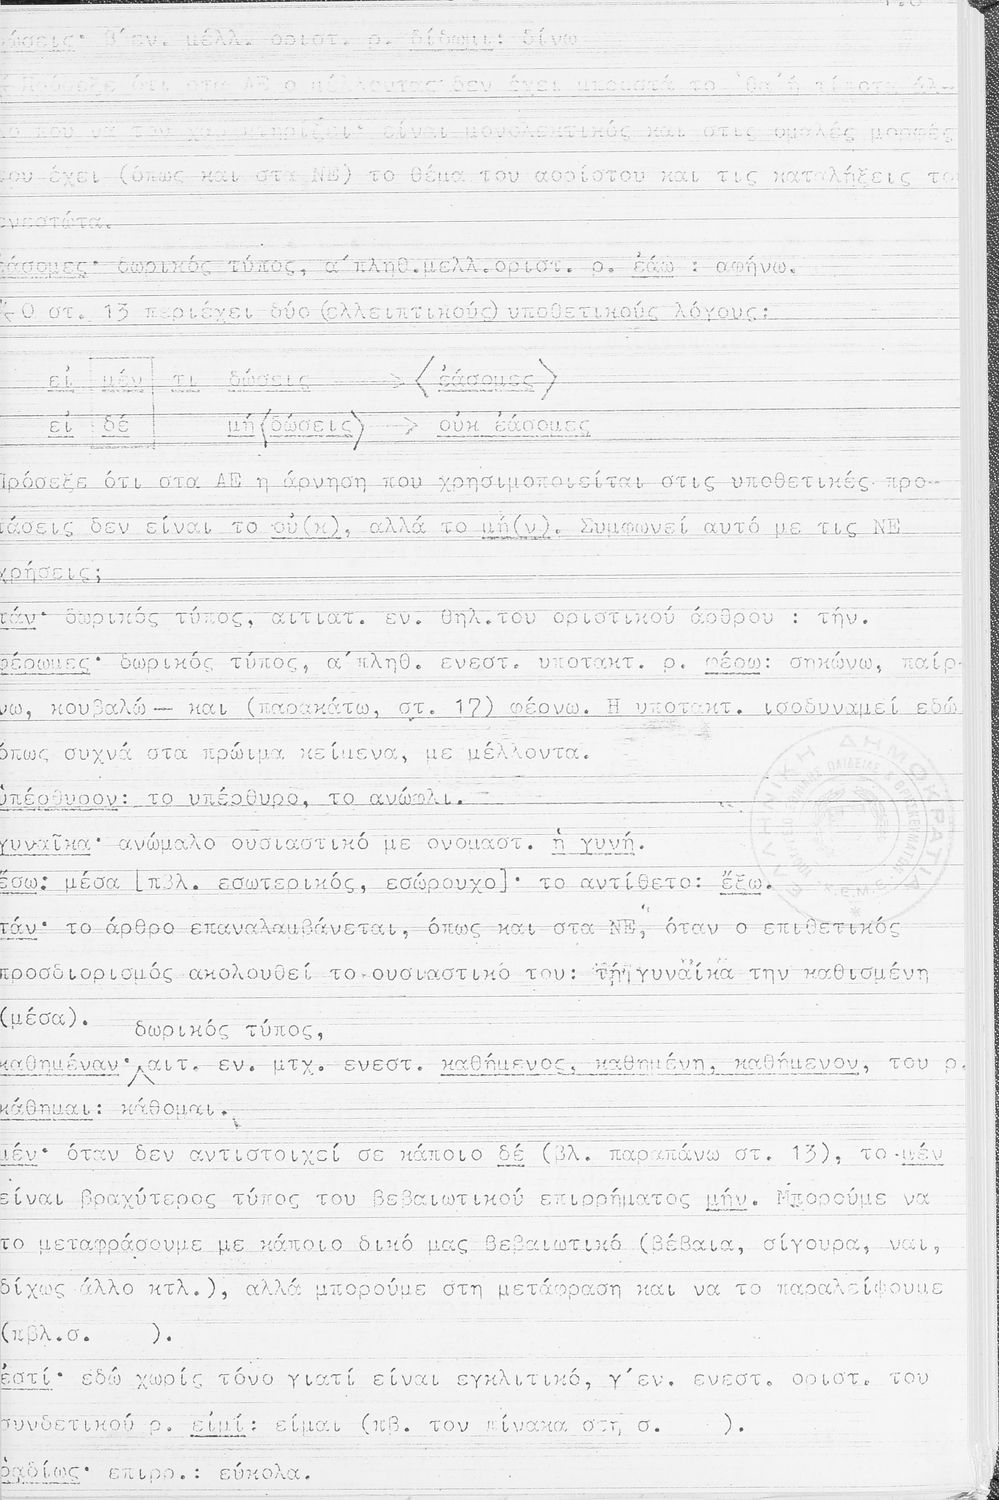 δώσεις· β΄εν. μέλλ. οριστ. ρ. δίδωμι: δίνω
Πρόσεξε ότι στα ΑΕ ο μέλλοντας δεν έχει μπροστά το 'θα' ή τίποτα άλ-
λο που να τον χαρακτηρίζει· είναι μονολεκτικός και στις ομαλές μορφές
του έχει (όπως και στα ΝΕ) το θέμα του αορίστου και τις καταλήξεις το
ενεστώτα.
ἐάσομες· δωρικός τύπος, α΄πληθ.μελλ.οριστ. ρ. ἐάω : αφήνω.
Ο στ. 13 περιέχει δύο (ελλειπτικούς) υποθετικούς λόγους:
εἰ μέν τι δώσεις ----> ⟨ἐάσομες⟩
εἰ δέ μή⟨δώσεις⟩ --> οὐκ ἐάσομες
Πρόσεξε ότι στα ΑΕ η άρνηση που χρησιμοποιείται στις υποθετικές προ-
τάσεις δεν είναι το οὐ(κ), αλλά το μή(ν). Συμφωνεί αυτό με τις ΝΕ
χρήσεις;
τάν· δωρικός τύπος, αιτιατ. εν. θηλ.του οριστικού άρθρου : τήν.
φέρωμες· δωρικός τύπος, α΄πληθ. ενεστ. υποτακτ. ρ. φέρω: σηκώνω, παίρ-
νω, κουβαλώ — και (παρακάτω, στ. 17) φέρνω. Η υποτακτ. ισοδυναμεί εδώ
όπως συχνά στα πρώιμα κείμενα, με μέλλοντα.
ὑπέρθυρον: το υπέρθυρο, το ανώφλι.
γυναῖκα· ανώμαλο ουσιαστικό με ονομαστ. ἡ γυνή.
ἔσω: μέσα [πβλ. εσωτερικός, εσώρουχο]· το αντίθετο: ἔξω.
τάν· το άρθρο επαναλαμβάνεται, όπως και στα ΝΕ, όταν ο επιθετικός
προσδιορισμός ακολουθεί το ουσιαστικό του: τή γυναίκα την καθισμένη
(μέσα).
δωρικός τύπος,
καθημέναν· αιτ. εν. μτχ. ενεστ. καθήμενος, καθημένη, καθήμενον, του ρ.
κάθημαι: κάθομαι.
μέν· όταν δεν αντιστοιχεί σε κάποιο δέ (βλ. παραπάνω στ. 13), το μέν
είναι βραχύτερος τύπος του βεβαιωτικού επιρρήματος μήν. Μπορούμε να
το μεταφράσουμε με κάποιο δικό μας βεβαιωτικό (βέβαια, σίγουρα, ναι,
δίχως άλλο κτλ.), αλλά μπορούμε στη μετάφραση και να το παραλείψουμε
(πβλ.σ. ).
ἐστί· εδώ χωρίς τόνο γιατί είναι εγκλιτικό, γ΄εν. ενεστ. οριστ. του
συνδετικού ρ. εἰμί: είμαι (πβ. τον πίνακα στη σ. ).
ῥαδίως· επιρρ.: εύκολα.
ΕΛΛΗΝΙΚΗ ΔΗΜΟΚΡΑΤΙΑ
Κ.Ε.Μ.Ε.